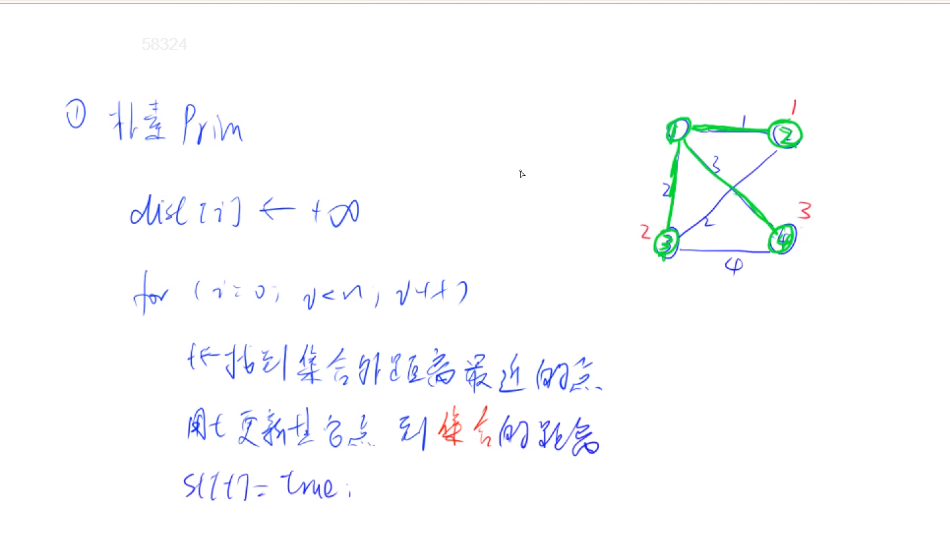 58324
① 朴素 Prim
dist[i] ← +∞
for (i=0; i<n; i++)
t←找到集合外距离最近的点
用t更新其它点 到集合的距离
st[t]=true;
1
1
1 2
2 3
2 3
2
3 4
4